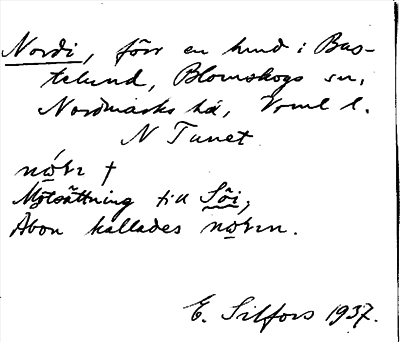 Nordi, förr en hund i Bas-
telund, Blomskogs sn,
Nordmarks hd, Vrml l.
N Tunet
nó̱rı †
Motsättning till Söi,
Åbon kallades no̱rın.
E. Silfors 1937.